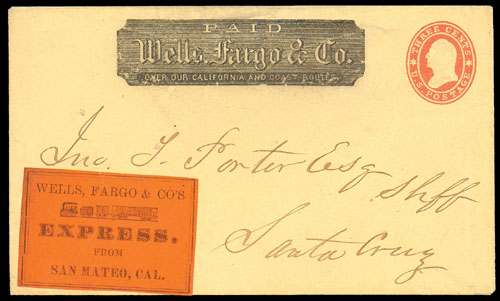 PAID
Wells, Fargo & Co.
OVER OUR CALIFORNIA AND COAST ROUTES.
THREE CENTS
U.S. POSTAGE
Jno. T. Porter Esq
Shff
Santa Cruz
WELLS, FARGO & CO'S
EXPRESS,
FROM
SAN MATEO, CAL.